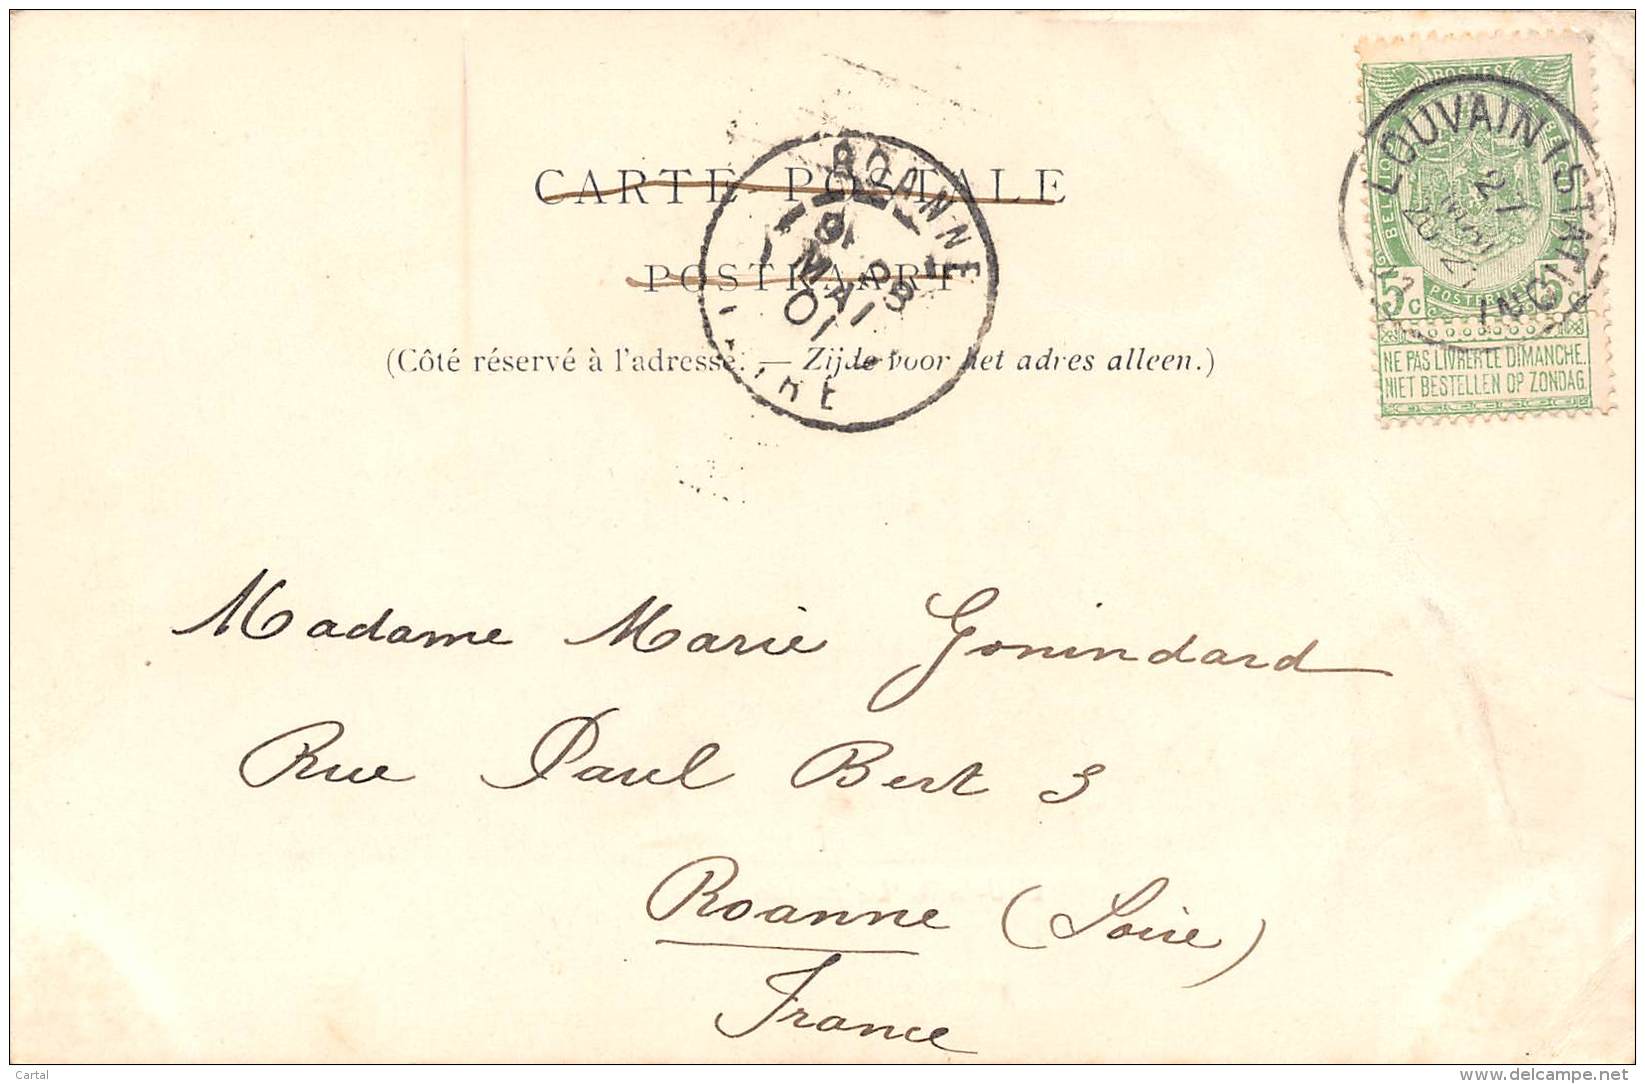 CARTE POSTALE
POSTKAART
(Côté réservé à l'adresse. — Zijde voor het adres alleen.)
ROANNE
MAI
01
LOIRE
POSTES
BELGIQUE
BELGIË
5c 5c
POSTERIJEN
NE PAS LIVRER LE DIMANCHE.
NIET BESTELLEN OP ZONDAG.
LOUVAIN (STATION)
Madame Marie Gonindard
Rue Paul Bert 3
Roanne (Loire)
France
Cartal
www.delcampe.net